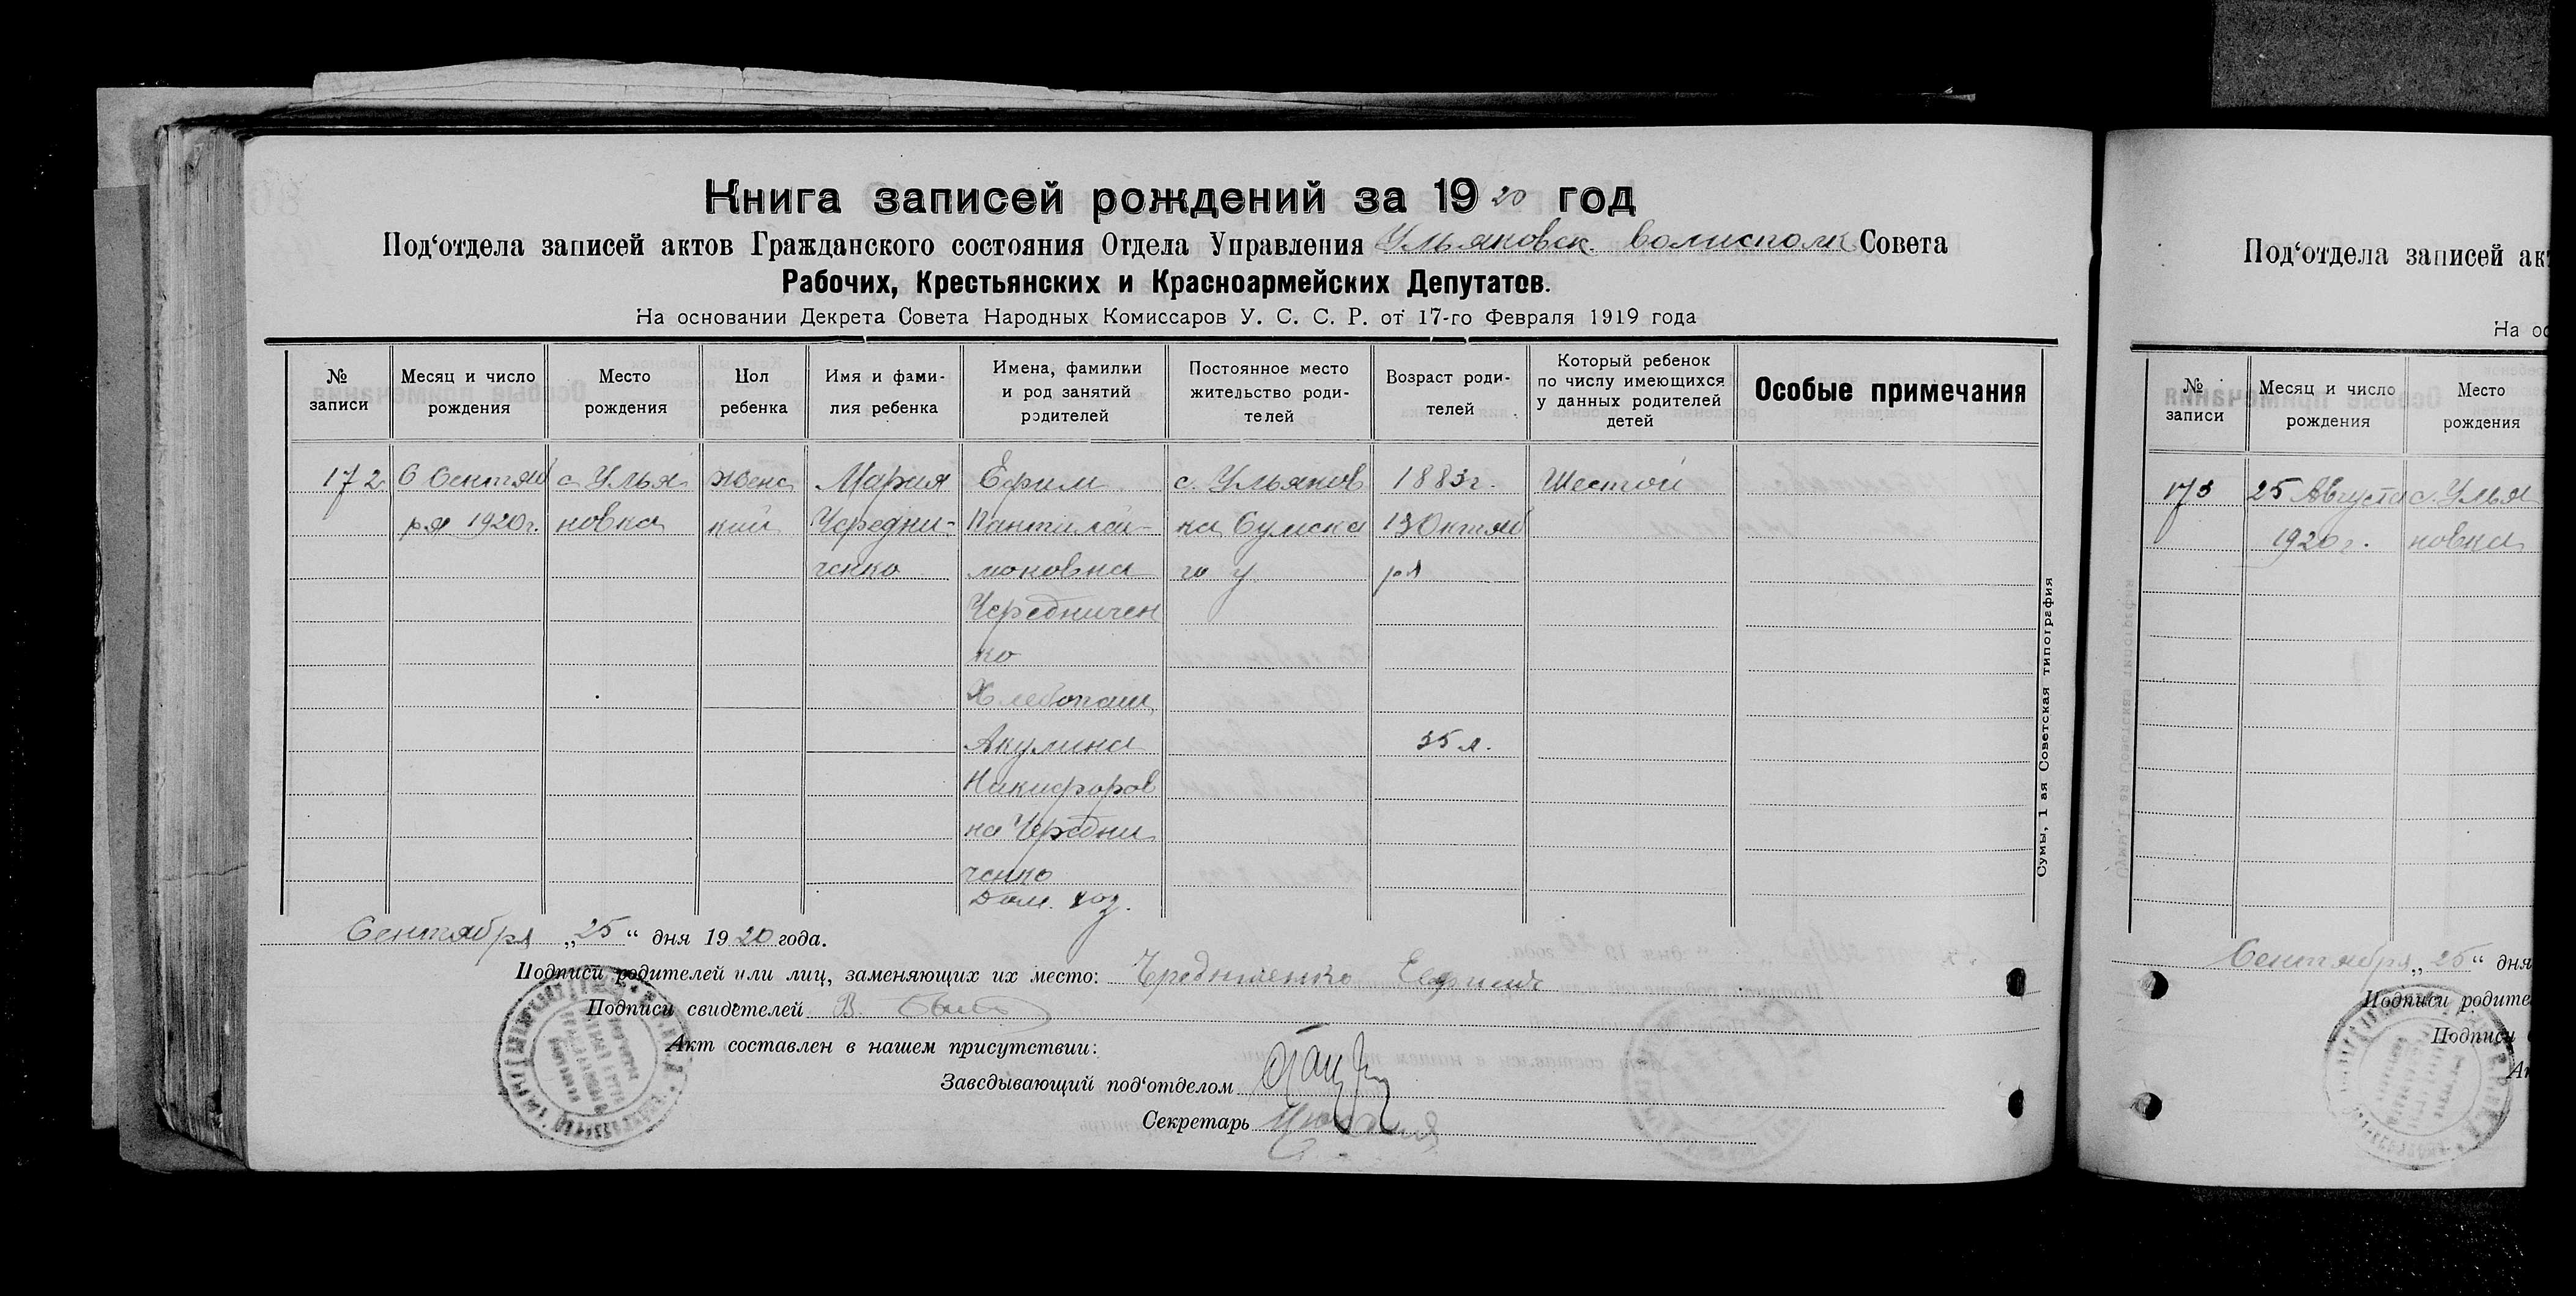 Книга записей рождений за 1920 год
Под‘отдела записей актов Гражданского состояния Отдела Управления Ульяновск. волисполк. Совета
Рабочих, Крестьянских и Красноармейских Депутатов.
На основании Декрета Совета Народных Комиссаров У. С. С. Р. от 17-го Февраля 1919 года
№ записи
Месяц и число рождения
Место рождения
Пол ребенка
Имя и фами-
лия ребенка
Имена, фамилки
и род занятий
родителей
Постоянное место
жительство роди-
телей
Возраст роди-
телей
Который ребенок
по числу имеющихся
у данных родителей
детей
Особые примечания
172
6 Сентяб
ря 1920г.
с Улья
новка
женс
кий
Мария
Чередни-
ченко
Ефим
Пантилей-
моновна
Чередничен
ко
Хлебопаш
Акулина
Никифоров
на Чередни
ченко
Дом. хоз.
с. Ульянов
ка Сумска
го у
1883г.
13 Октяб
ря
35 л.
Шестой
Сентября „25“ дня 1920 года.
Подписи родителей или лиц, заменяющих их место: Чредниченко Ефим
Подписи свидетелей В.
Акт составлен в нашем присутствии:
Заведывающий под‘отделом
Секретарь
Сумы, 1 ая Советская типография
Под‘отдела записей ак
На ос
№ записи
Месяц и число рождения
Место рождения
173
25 Августа
1920г.
с. Улья
новка
Сентября „25“ дня
Подписи родите
Подписи